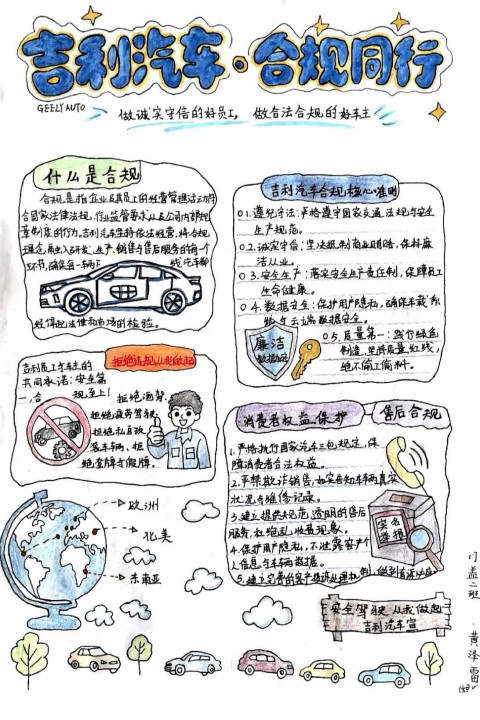 吉利汽车·合规同行
GEELY AUTO
做诚实守信的好员工，做合法合规的好车主
什么是合规
合规是指企业及其员工的经营管理活动符
合国家法律法规、行业监管要求以及公司内部规
章制度的行为。吉利汽车坚持依法经营，将合规
理念融入研发、生产、销售与售后服务的每一个
环节，确保每一辆
汽车都
经得起法律和市场的检验。
吉利汽车合规核心准则
01.遵纪守法：严格遵守国家交通法规与安全
生产规范。
02.诚实守信：坚决抵制商业贿赂，保持廉
洁从业。
03.安全生产：落实安全生产责任制，保障员工
生命健康。
04.数据安全：保护用户隐私，确保车载系
统与云端数据安全。
05.质量第一：践行绿色
制造，坚持质量红线，
绝不偷工偷料。
廉洁
吉利员工与车主的
共同承诺：安全第
一，合规至上！
拒绝违规从我做起
拒绝酒驾，
拒绝疲劳驾驶，
拒绝私自改
装车辆，拒
绝套牌与假牌。
消费者权益保护
售后合规
1.严格执行国家汽车三包规定，保
障消费者合法权益。
2.严禁欺诈销售，如实告知车辆真实
状况与维修记录。
3.建立提供规范、透明的售后
服务，杜绝乱收费现象。
4.保护用户隐私，不泄露客户个
人信息与车辆数据。
5.建立完善的客户投诉处理机制，
实名
举报
欧洲
北美
东南亚
安全驾驶 从我做起
吉利汽车宣